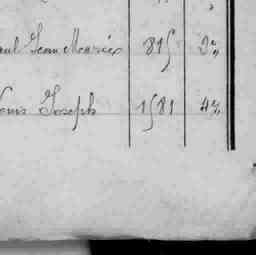 aul Jean Marie 815 2
ouis Joseph 1581 4